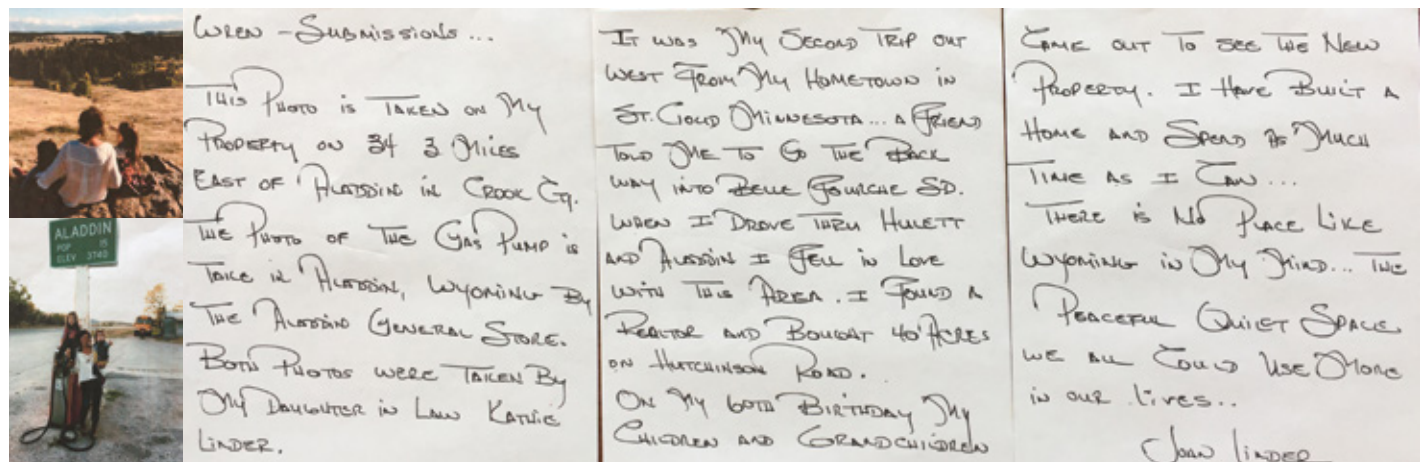 ALADDIN
POP 15
ELEV 3740
WREN - SUBMISSIONS...
THIS PHOTO IS TAKEN ON MY
PROPERTY ON 34 3 MILES
EAST OF ALADDIN IN CROOK CO.
THE PHOTO OF THE GAS PUMP IS
TAKE IN ALADDIN, WYOMING BY
THE ALADDIN GENERAL STORE.
BOTH PHOTOS WERE TAKEN BY
MY DAUGHTER IN LAW KATHIE
LINDER.
IT WAS MY SECOND TRIP OUT
WEST FROM MY HOMETOWN IN
ST. CLOUD MINNESOTA... A FRIEND
TOLD ME TO GO THE BACK
WAY INTO BELLE FOURCHE SD.
WHEN I DROVE THRU HULETT
AND ALADDIN I FELL IN LOVE
WITH THIS AREA. I FOUND A
REALTOR AND BOUGHT 40 ACRES
ON HUTCHINSON ROAD.
ON MY 60TH BIRTHDAY MY
CHILDREN AND GRANDCHILDREN
CAME OUT TO SEE THE NEW
PROPERTY. I HAVE BUILT A
HOME AND SPEND AS MUCH
TIME AS I CAN...
THERE IS NO PLACE LIKE
WYOMING IN MY MIND... THE
PEACEFUL QUIET SPACE
WE ALL COULD USE MORE
IN OUR LIVES..
JOAN LINDER